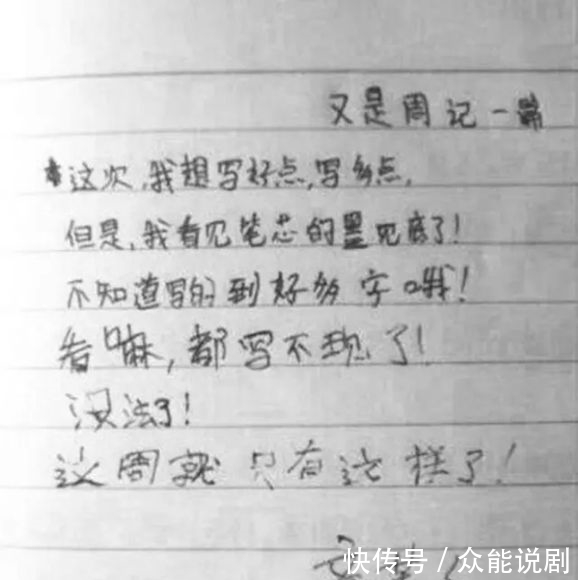 又是周记一篇
这次,我想写好点,写多点,
但是,我看见笔芯的墨见底了!
不知道写的到好多字哦!
看嘛,都写不现了!
没法了!
这周就只有这样了!
快传号/众能说剧